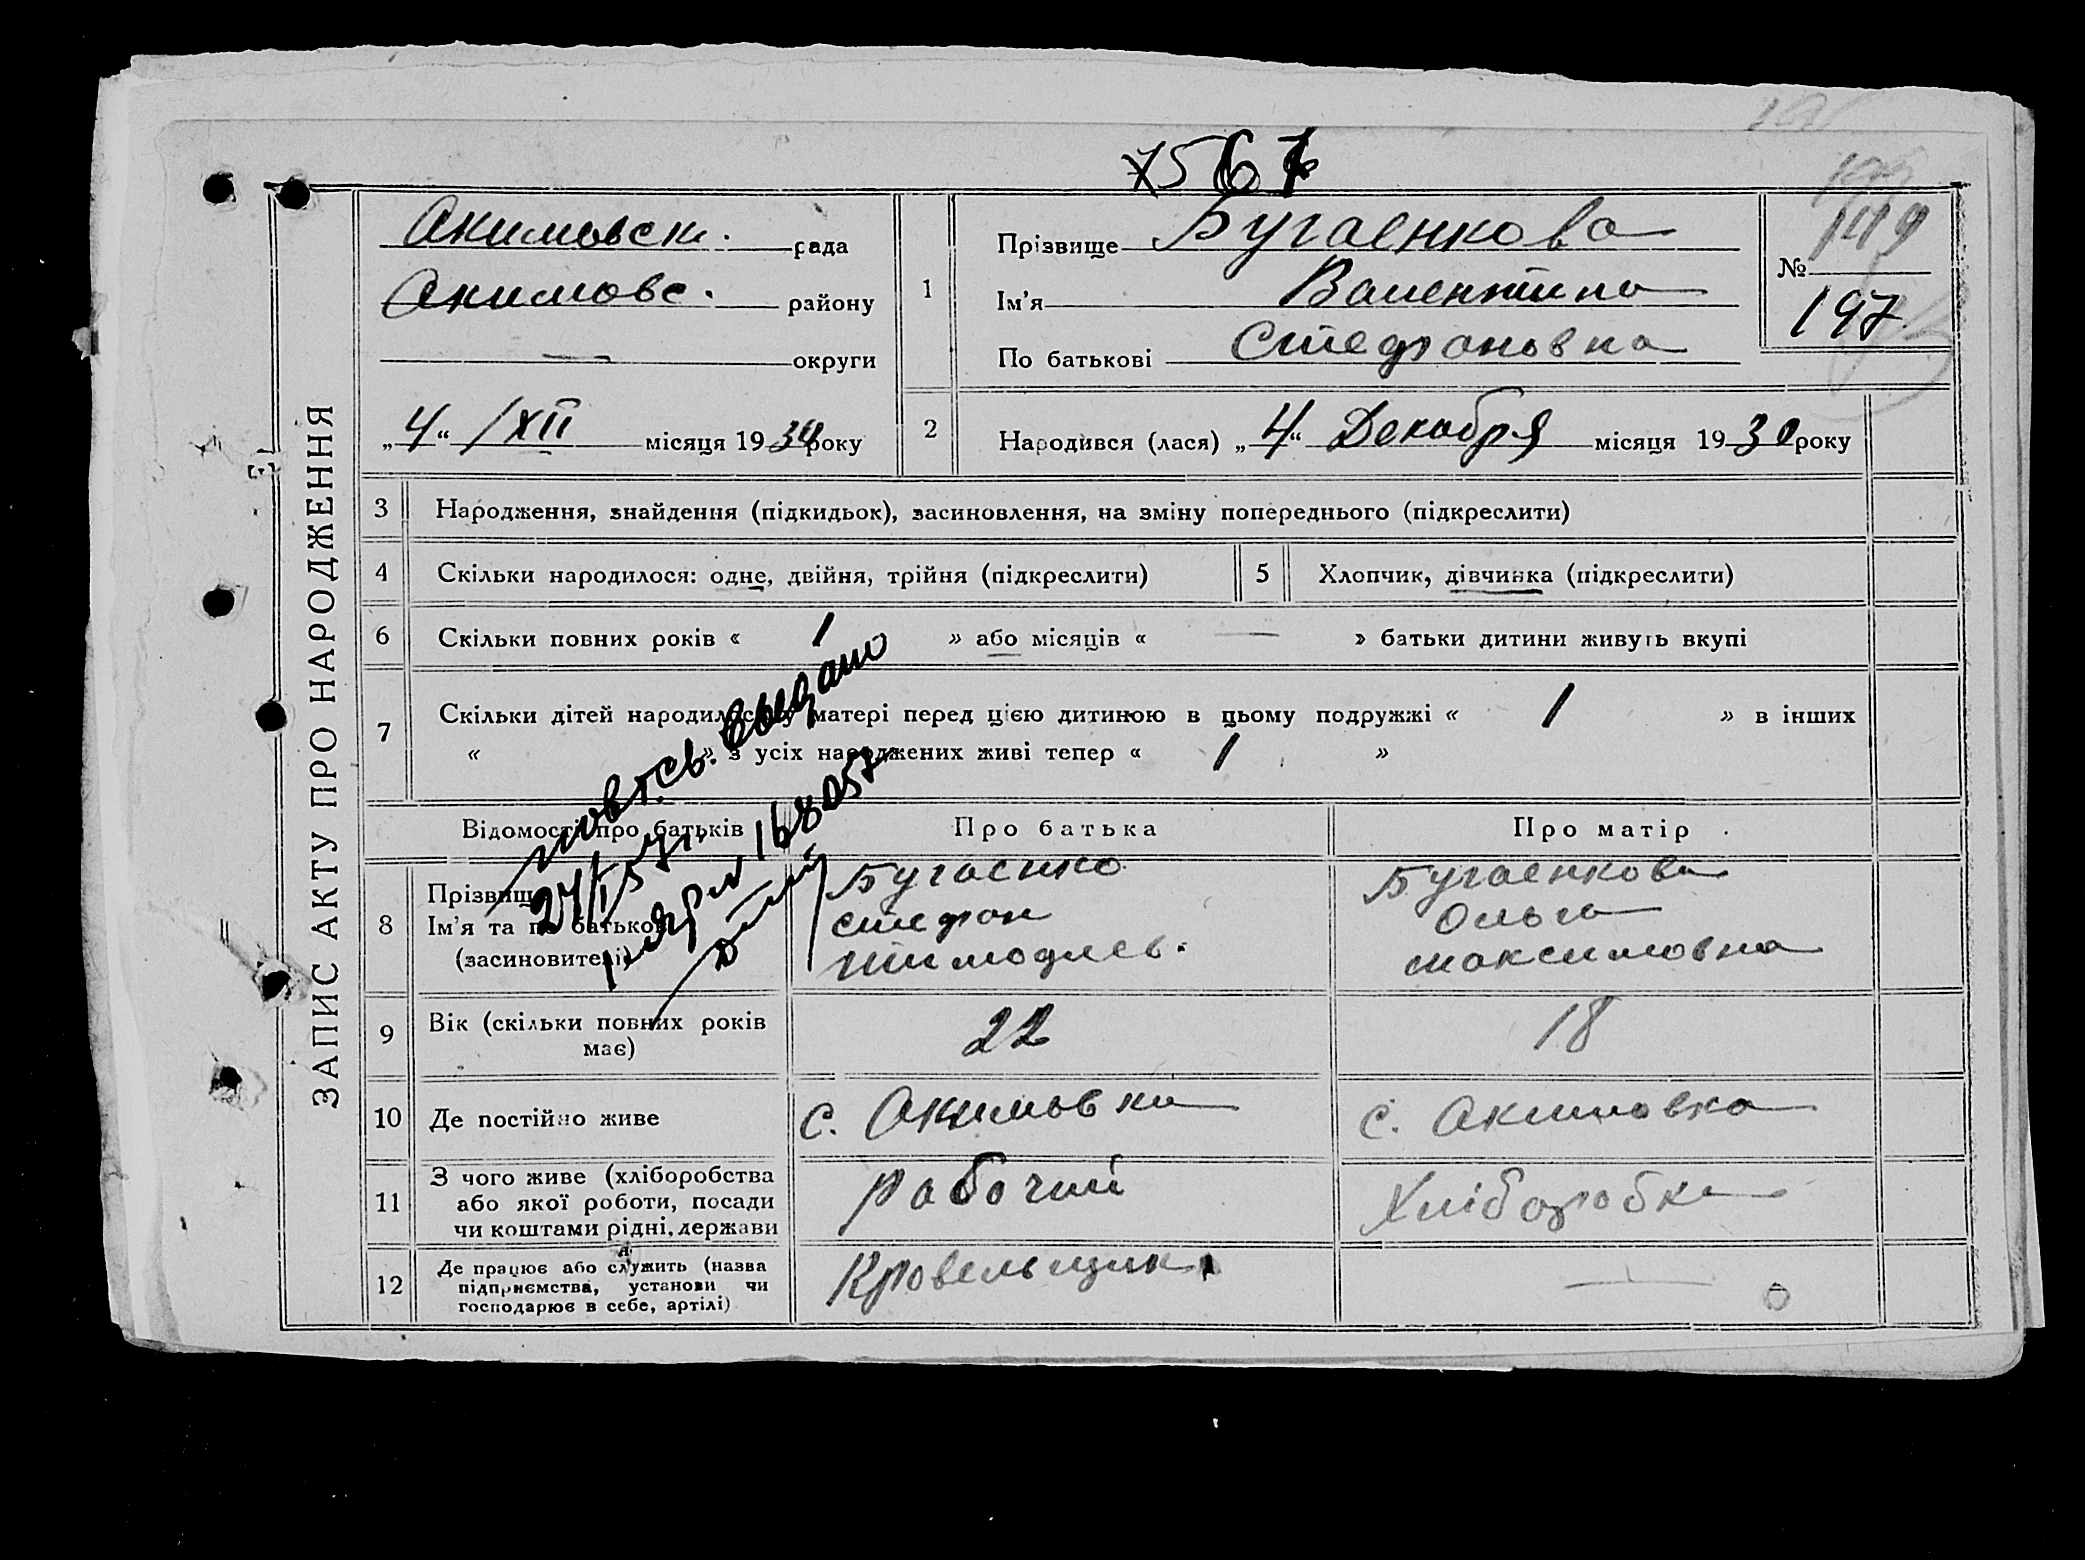 ЗАПИС АКТУ ПРО НАРОДЖЕННЯ
Акимовск. рада
Акимовс. району
— округи
„4“ /XII місяця 1930 року
1
Прізвище Бугаенкова
Ім'я Валентина
По батькові Стефановна
№
197
2
Народився (лася) „4“ Декабря місяця 1930 року
3 Народження, знайдення (підкидьок), засиновлення, на зміну попереднього (підкреслити)
4 Скільки народилося: одне, двійня, трійня (підкреслити)
5 Хлопчик, дівчинка (підкреслити)
6 Скільки повних років « 1 » або місяців « — » батьки дитини живуть вкупі
7 Скільки дітей народилось у матері перед цією дитиною в цьому подружжі « 1 » в інших
« » з усіх народжених живі тепер « 1 »
повт. св. выдано
24/I 57 г.
Відомості про батьків
Про батька
Про матір
8
Прізвище
Ім'я та по батькові
(засиновителі)
Бугаенко
Стефан
Тимофеев.
Бугаенкова
Ольга
Максимовна
9
Вік (скільки повних років
має)
22
18
10 Де постійно живе
с. Акимовка
с. Акимовка
11
З чого живе (хліборобства
або якої роботи, посади
чи коштами рідні, держави
рабочий
Хліборобка
12
Де працює або служить (назва
підприємства, установи чи
господарює в себе, артілі)
Кровельщик
—